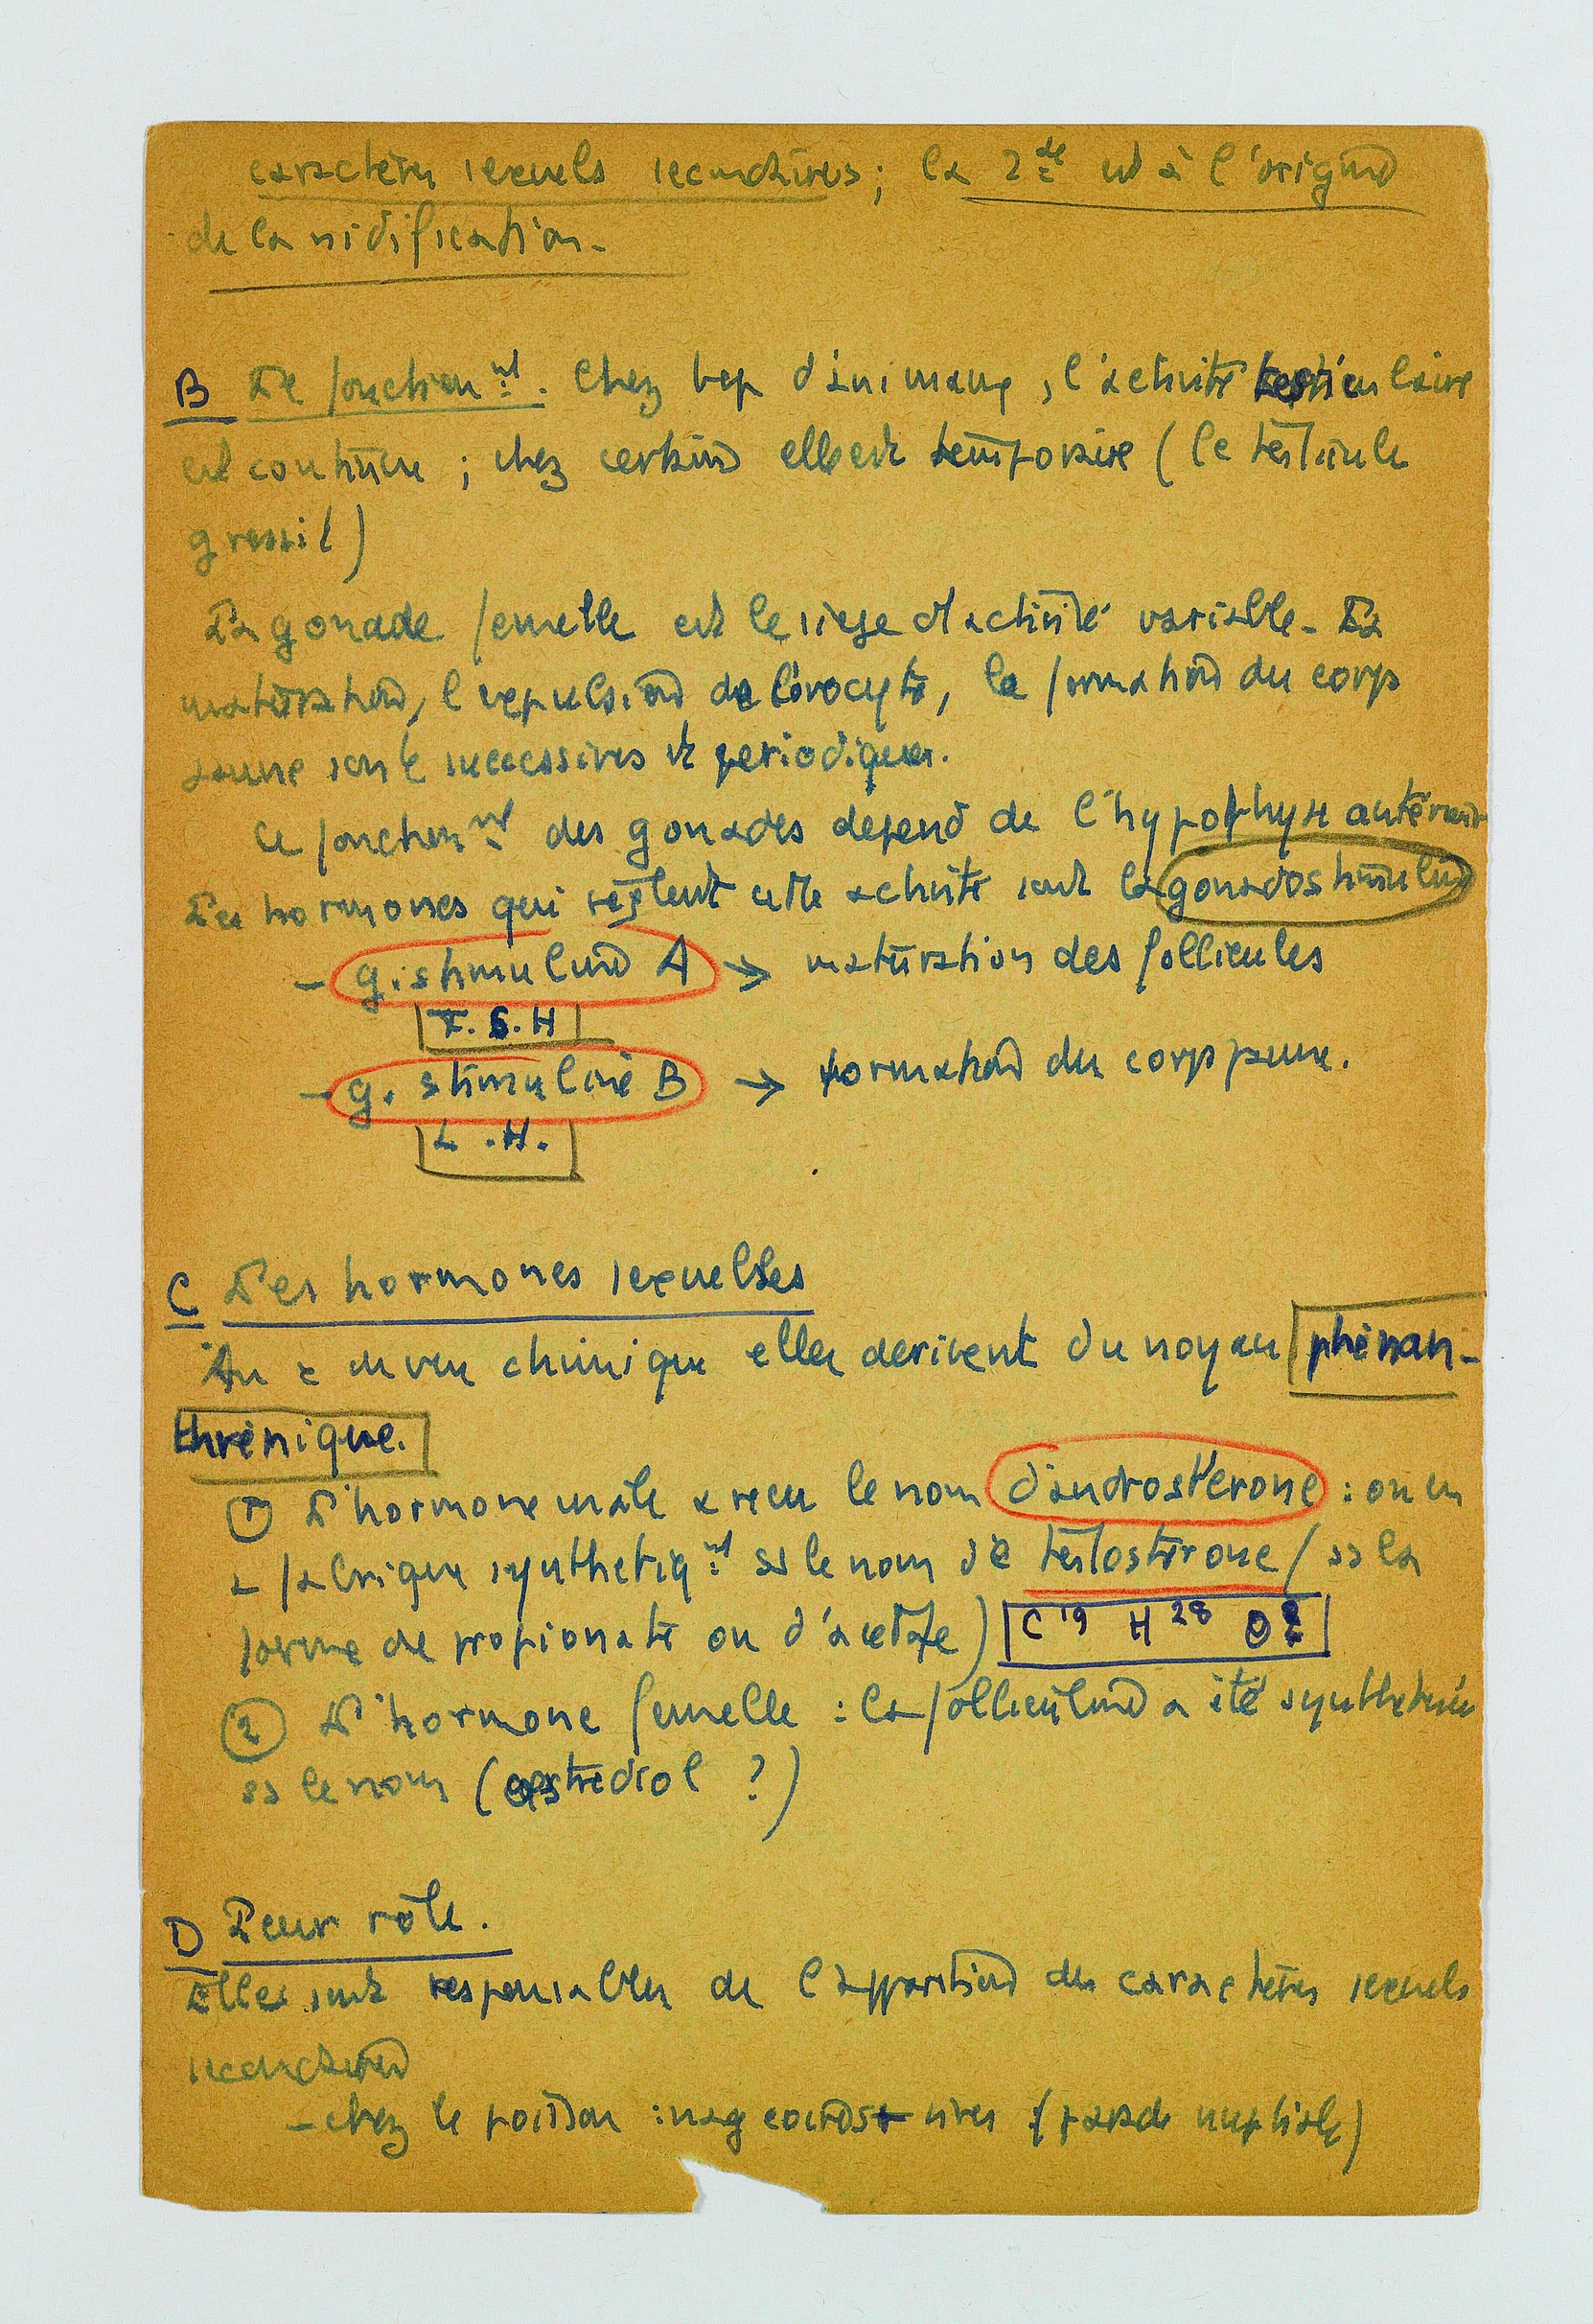 caractères sexuels secondaires; la 2de est à l'origine
de la nidification.
B Le fonctionnt. Chez bcp d'animaux, l'activité testiculaire
est continue ; chez certains elle est temporaire (le testicule
gressil)
La gonade femelle est le siège d'activité variable. La
maturation, l'expulsion de l'ovocyte, la formation du corps
jaune sont successives et périodiques.
Le fonctionnt des gonades dépend de l'hypophyse antérieure
Les hormones qui règlent cette activité sont la gonadostimuline
- g. stimuline A → maturation des follicules
F. S. H
- g. stimuline B → formation du corps jaune.
L .H.
C Les hormones sexuelles
Au de vue chimique elles derivent du noyau phénan-
thrénique.
① L'hormone mâle a reçu le nom d'androstérone : on en
a fabriqué synthétiqnt ss le nom de testostérone (ss la
forme de propionate ou d'acétate) C19 H28 O2
② L'hormone femelle : la folliculine a été synthétisée
ss le nom (œstrediol ?)
D Leur rôle.
Elles sont responsables de l'apparition des caractères sexuels
secondaires
- chez le poisson : vives (parade nuptiale)